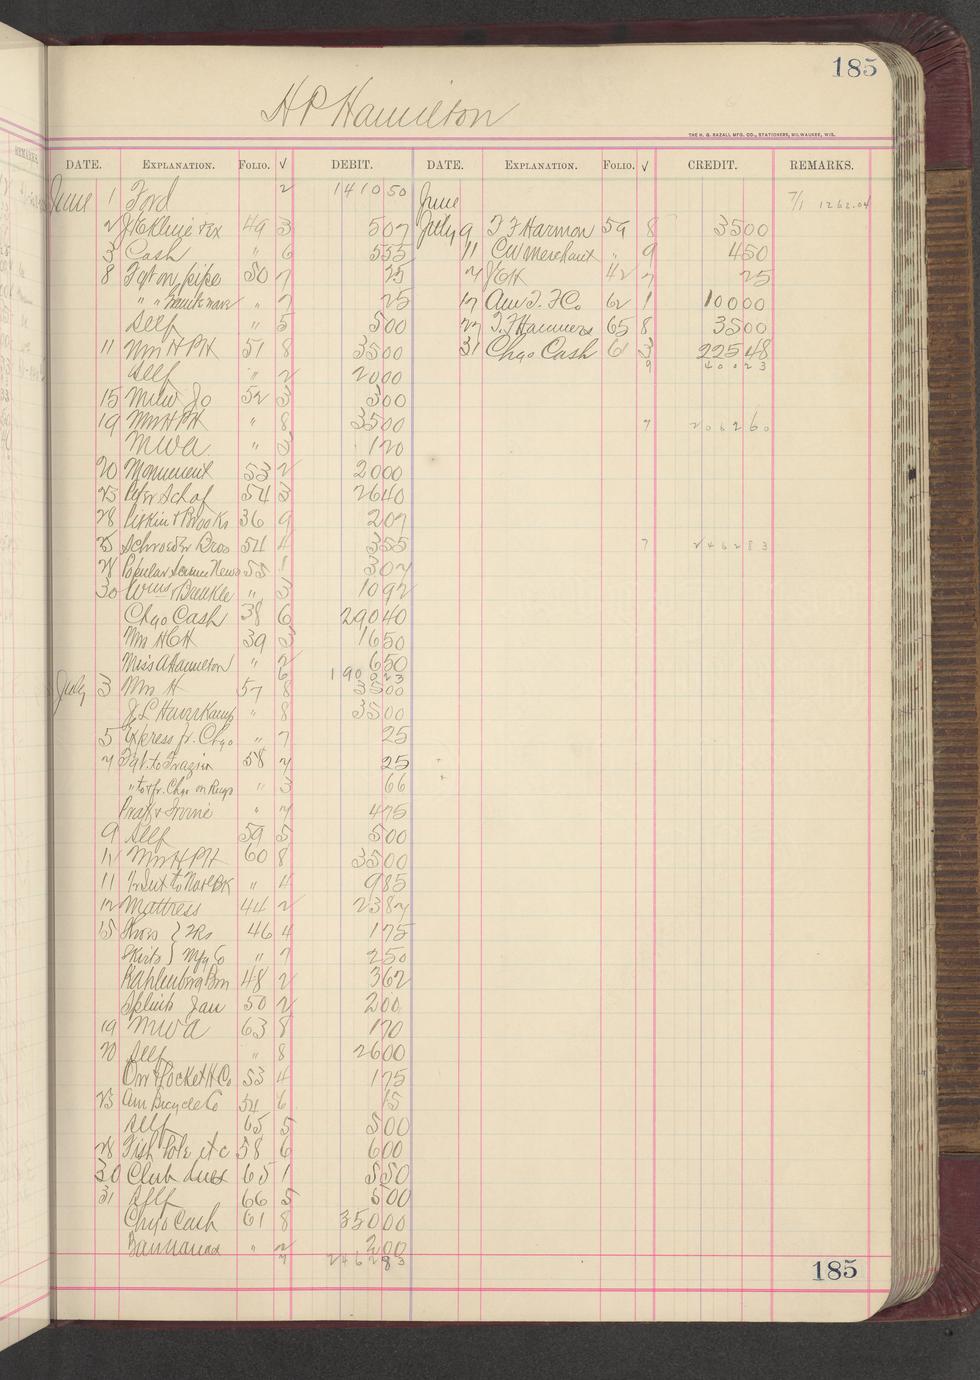 185
H P Hamilton
THE H. G. RAZALL MFG. CO., STATIONERS, MILWAUKEE, WIS.
DATE. EXPLANATION. FOLIO. √ DEBIT. DATE. EXPLANATION. FOLIO. √ CREDIT. REMARKS.
June 1 Ford 2 1410 50 June 7/1 1262.04
2 49 3 5 07 July 9 T F Harmon 59 8 35 00
3 Cash " 6 5 55 11 CW Merchant " 9 4 50
8 Fgt on pipe 50 7 25 7 42 7 25
" " " 7 25 17 Am T. F Co. 62 1 100 00
Self " 5 5 00 27 T. F Hammers 65 8 35 00
11 Mrs H P H 51 8 35 00 31 Chgo Cash 61 3 225 48
Self " 2 20 00 9 400 23
15 Milw Jo 52 3 3 00
19 Mrs H P H " 8 35 00 7 2062 60
MWA " 3 1 20
20 Monument 53 2 20 00
23 Schaf 54 3 26 40
28 Pitkin & Brooks 36 9 2 07
25 Schroeder Bros 54 4 3 55 7 2462 83
Popular Science News 55 1 3 07
30 Wms & Bunkle " 3 10 92
Chgo Cash 38 6 290 40
Mrs H C H 39 3 16 50
Miss A Hamilton " 2 6 50
6 1900 23
July 3 Mrs H 57 8 35 00
J L Haverkamp " 8 35 00
5 Express fr. Chgo " 7 25
7 Fgt. to Frazier 58 7 25
" to & fr. Chgo on Rugs " 3 66
Irvine " 7 4 75
9 Self 59 5 5 00
11 Mrs H P H 60 8 35 00
11 to Natl BK " 4 9 85
12 Mattress 44 2 23 87
15 46 4 1 75
Skirts } Mfg Co " 7 2 50
Kahlenberg Bro 48 2 3 62
Splint Jau 50 2 2 00
19 MWA 63 8 1 70
20 Self " 8 26 00
Orr & Locket H Co 53 4 1 75
25 Am Bicycle Co 54 6 15
Self 65 5 5 00
28 Fish Pole etc 58 6 6 00
30 Club Dues 65 1 5 50
31 Self 66 5 5 00
Chgo Cash 61 8 350 00
Bannanas " 2 2 00
7 2462 83
185